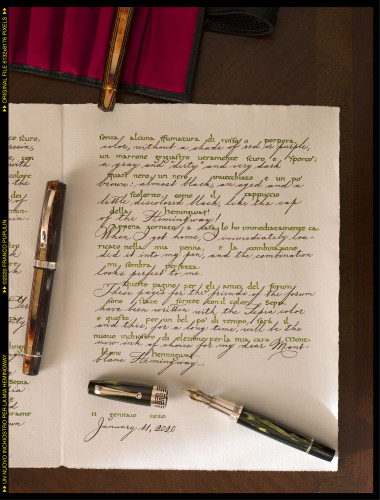 ORIGINAL FILE 6132x8176 PIXELS
©2020 FRANCO PUPULIN
UN NUOVO INCHIOSTRO PER LA MIA HEMINGWAY
senza alcuna sfumatura di rosso o porpora,
color, without a shade of red or purple,
un marrone grigiastro veramente scuro e "sporco";
a gray and "dirty" and very dark
quasi nero, un nero invecchiato e un po'
brown; almost black, an aged and a
scolorito, come il cappuccio
little discolored black, like the cap
della Hemingway!
of the Hemingway!
Appena tornato a casa, lo ho immediatamente ca-
When I got home, I immediately loa-
ricato nella mia penna, e la combinazione
ded it into my pen, and the combination
mi sembra perfetta.
looks perfect to me.
Queste pagine per gli amici del forum
These pages for the friends of the forum
sono state scritte con il color Sepia
have been written with the Sepia color
e questo, per un bel po' di tempo, sarà il
and this, for a long time, will be the
nuovo inchiostro di elezione per la mia cara Mont-
new ink of choice for my dear Mont-
blanc Hemingway...
blanc Hemingway...
11 gennaio 2020
January 11, 2020